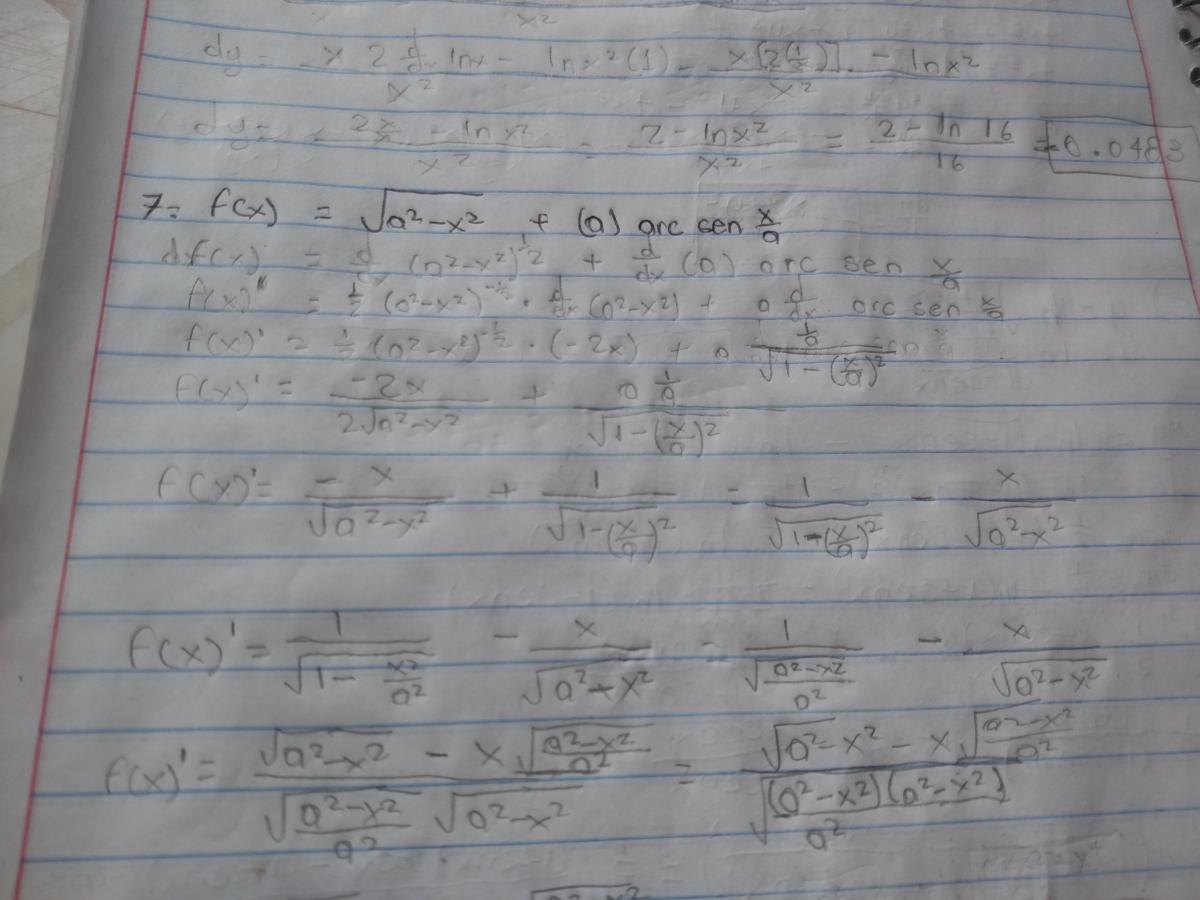 x²
dy = x 2 d/dx lnx - lnx²(1) / x² = x[2(1/x)] - lnx² / x²
dy = 2x/x - lnx² / x² = 2 - lnx² / x² = 2 - ln 16 / 16 = -0.0483
7= f(x) = √(a²-x²) + (a) arc sen x/a
d f(x) = d/dx (a²-x²)^1/2 + d/dx (a) arc sen x/a
f(x)' = 1/2 (a²-x²)^-1/2 · d/dx (a²-x²) + a d/dx arc sen x/a
f(x)' = 1/2 (a²-x²)^-1/2 · (-2x) + a (1/a)/√(1-(x/a)²)
f(x)' = -2x / 2√(a²-x²) + a 1/a / √(1-(x/a)²)
f(x)' = -x / √(a²-x²) + 1 / √(1-(x/a)²) = 1 / √(1-(x/a)²) - x / √(a²-x²)
f(x)' = 1 / √(1 - x²/a²) - x / √(a²-x²) = 1 / √((a²-x²)/a²) - x / √(a²-x²)
f(x)' = √(a²-x²) - x √((a²-x²)/a²) / √((a²-x²)/a²) √(a²-x²) = √(a²-x²) - x √((a²-x²)/a²) / √((a²-x²)(a²-x²)/a²)